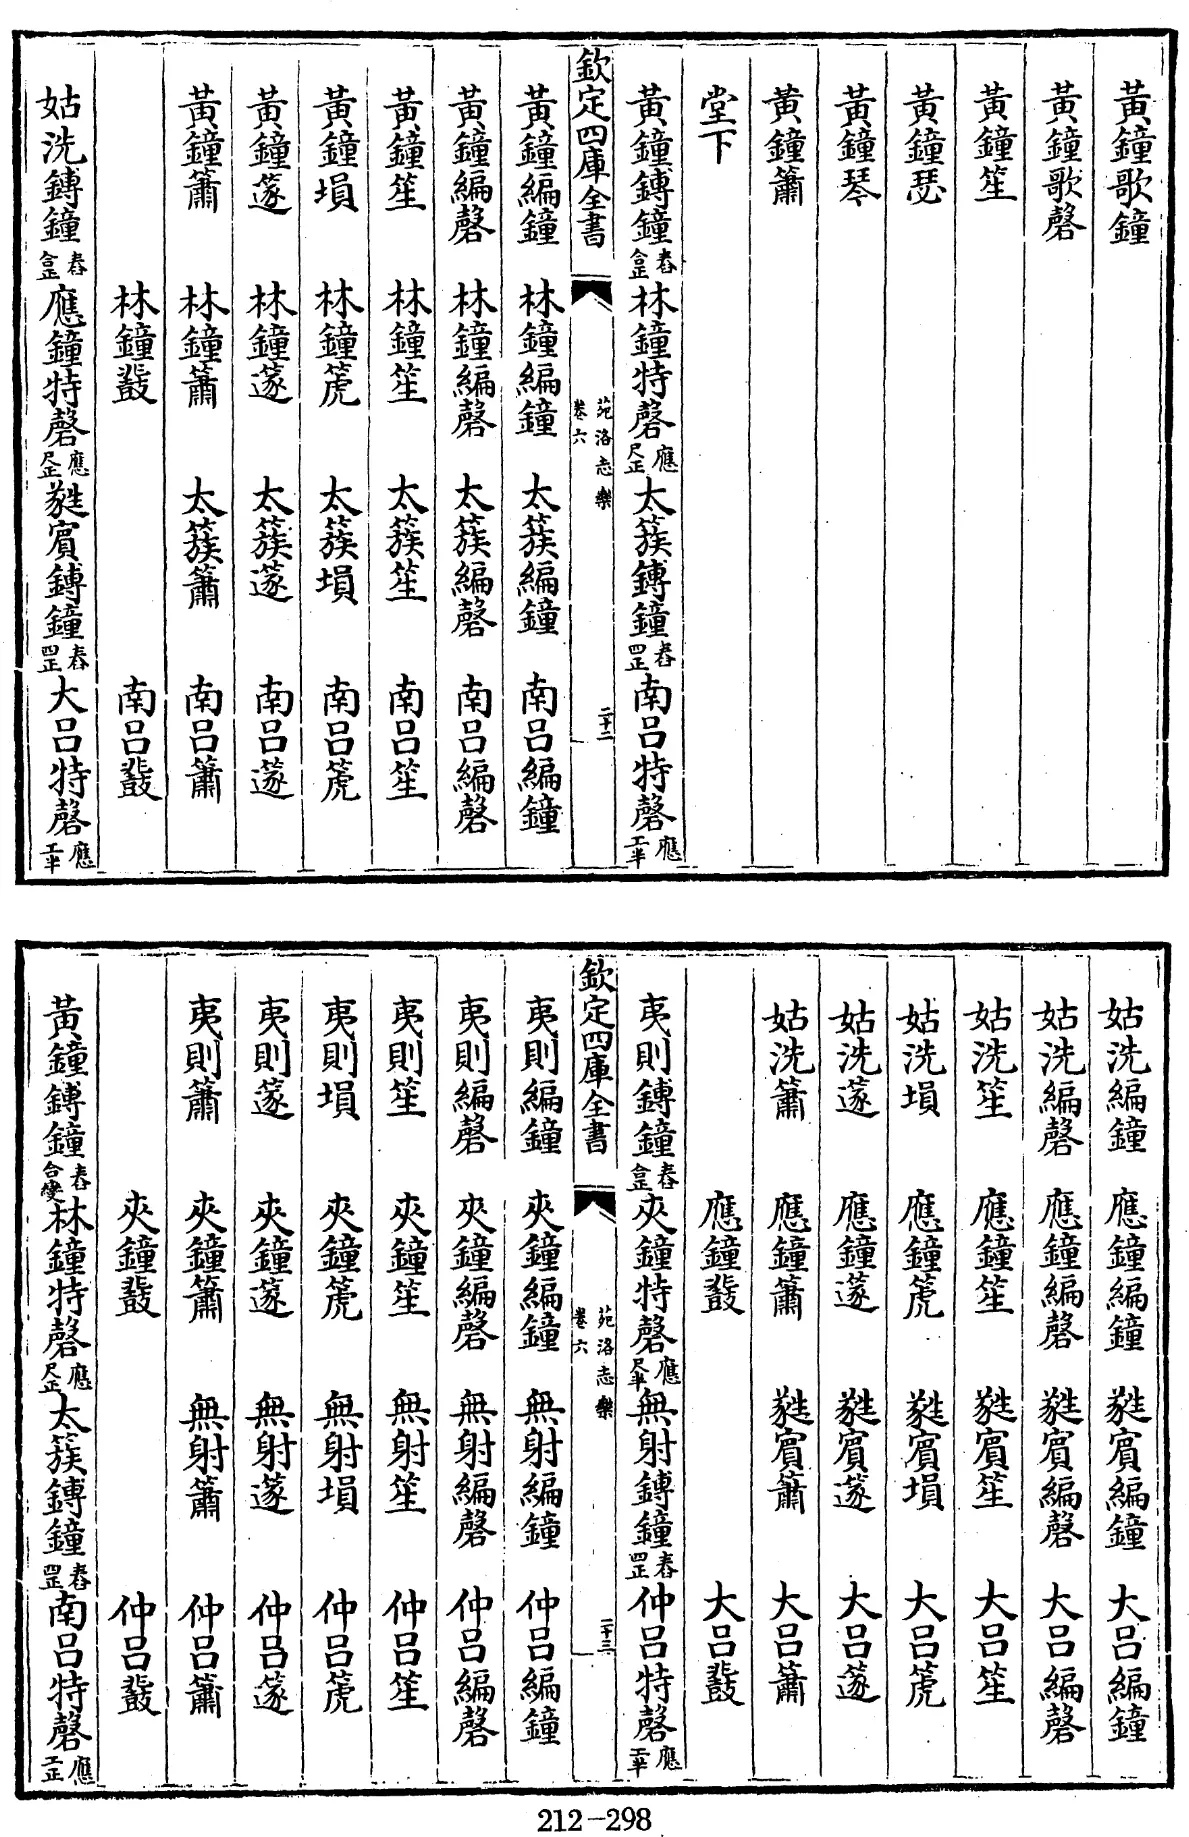 黃鐘歌鐘
黃鐘歌磬
黃鐘笙
黃鐘瑟
黃鐘琴
黃鐘簫
堂下
黃鐘鎛鐘舂合正林鐘特磬應尺正太簇鎛鐘舂四正南呂特磬應工半
欽定四庫全書 苑洛志樂 卷六 二十二
黃鐘編鐘 林鐘編鐘 太簇編鐘 南呂編鐘
黃鐘編磬 林鐘編磬 太簇編磬 南呂編磬
黃鐘笙 林鐘笙 太簇笙 南呂笙
黃鐘塤 林鐘箎 太簇塤 南呂箎
黃鐘篴 林鐘篴 太簇篴 南呂篴
黃鐘簫 林鐘簫 太簇簫 南呂簫
林鐘鼗 南呂鼗
姑洗鎛鐘舂合正應鐘特磬應尺正蕤賓鎛鐘舂四正大呂特磬應工半
姑洗編鐘 應鐘編鐘 蕤賓編鐘 大呂編鐘
姑洗編磬 應鐘編磬 蕤賓編磬 大呂編磬
姑洗笙 應鐘笙 蕤賓笙 大呂笙
姑洗塤 應鐘箎 蕤賓塤 大呂箎
姑洗篴 應鐘篴 蕤賓篴 大呂篴
姑洗簫 應鐘簫 蕤賓簫 大呂簫
應鐘鼗 大呂鼗
夷則鎛鐘舂合正夾鐘特磬應尺半無射鎛鐘舂四正仲呂特磬應工半
欽定四庫全書 苑洛志樂 卷六 二十三
夷則編鐘 夾鐘編鐘 無射編鐘 仲呂編鐘
夷則編磬 夾鐘編磬 無射編磬 仲呂編磬
夷則笙 夾鐘笙 無射笙 仲呂笙
夷則塤 夾鐘箎 無射塤 仲呂箎
夷則篴 夾鐘篴 無射篴 仲呂篴
夷則簫 夾鐘簫 無射簫 仲呂簫
夾鐘鼗 仲呂鼗
黃鐘鎛鐘舂合變林鐘特磬應尺正太簇鎛鐘舂四正南呂特磬應工正
212-298